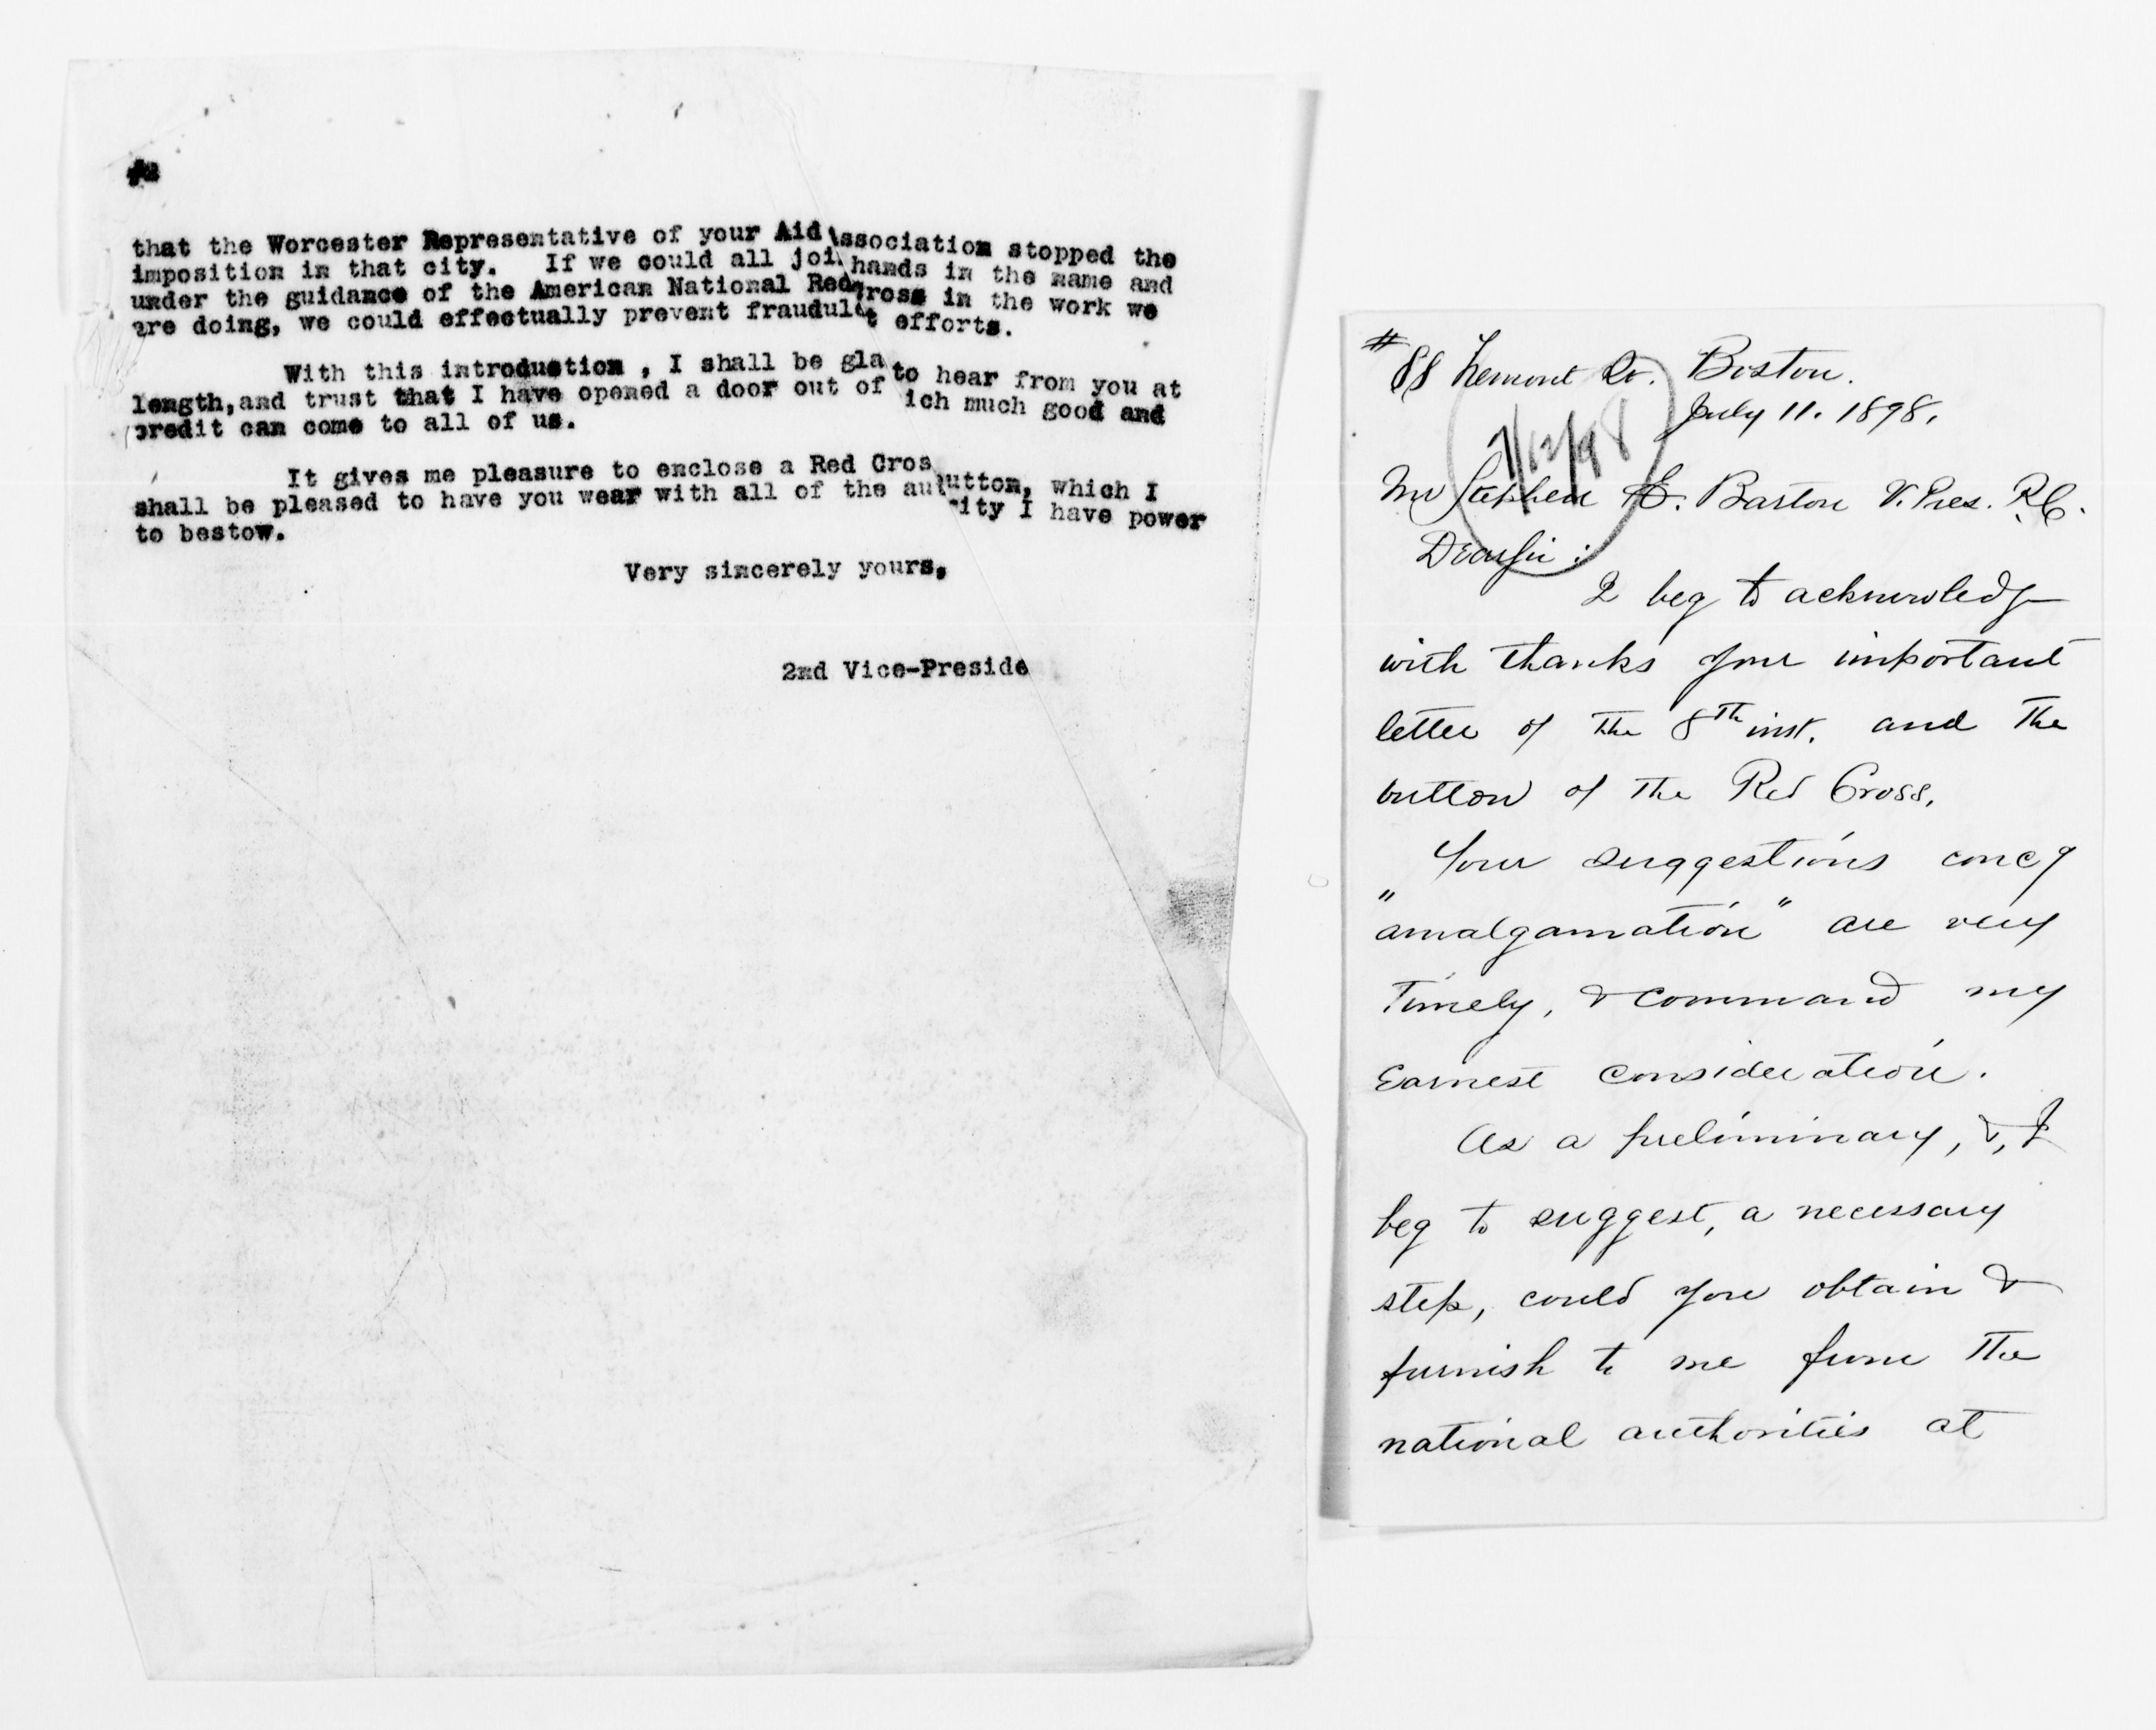 #2
that the Worcester Representative of your Aid ssociation stopped the
imposition in that city. If we could all joi hands in the name and
under the guidance of the American National Red ross in the work we
are doing, we could effectually prevent fraudul t efforts.
With this introduction , I shall be gla to hear from you at
length,and trust that I have opened a door out of ich much good and
credit can come to all of us.
It gives me pleasure to enclose a Red Cros utton, which I
shall be pleased to have you wear with all of the au ity I have power
to bestow.
Very sincerely yours,
2nd Vice-Preside
# 88 Tremont St. Boston.
July 11. 1898.
7/12/98
Mr Stephen E. Barton V. Pres. R.C.
Dear Sir:
I beg to acknowledge
with thanks your important
letter of the 8th inst. and the
button of the Red Cross.
Your suggestions concg
"amalgamation" are very
timely, & command my
earnest consideration.
As a preliminary, &, I
beg to suggest, a necessary
step, could you obtain &
furnish to me from the
national authorities at